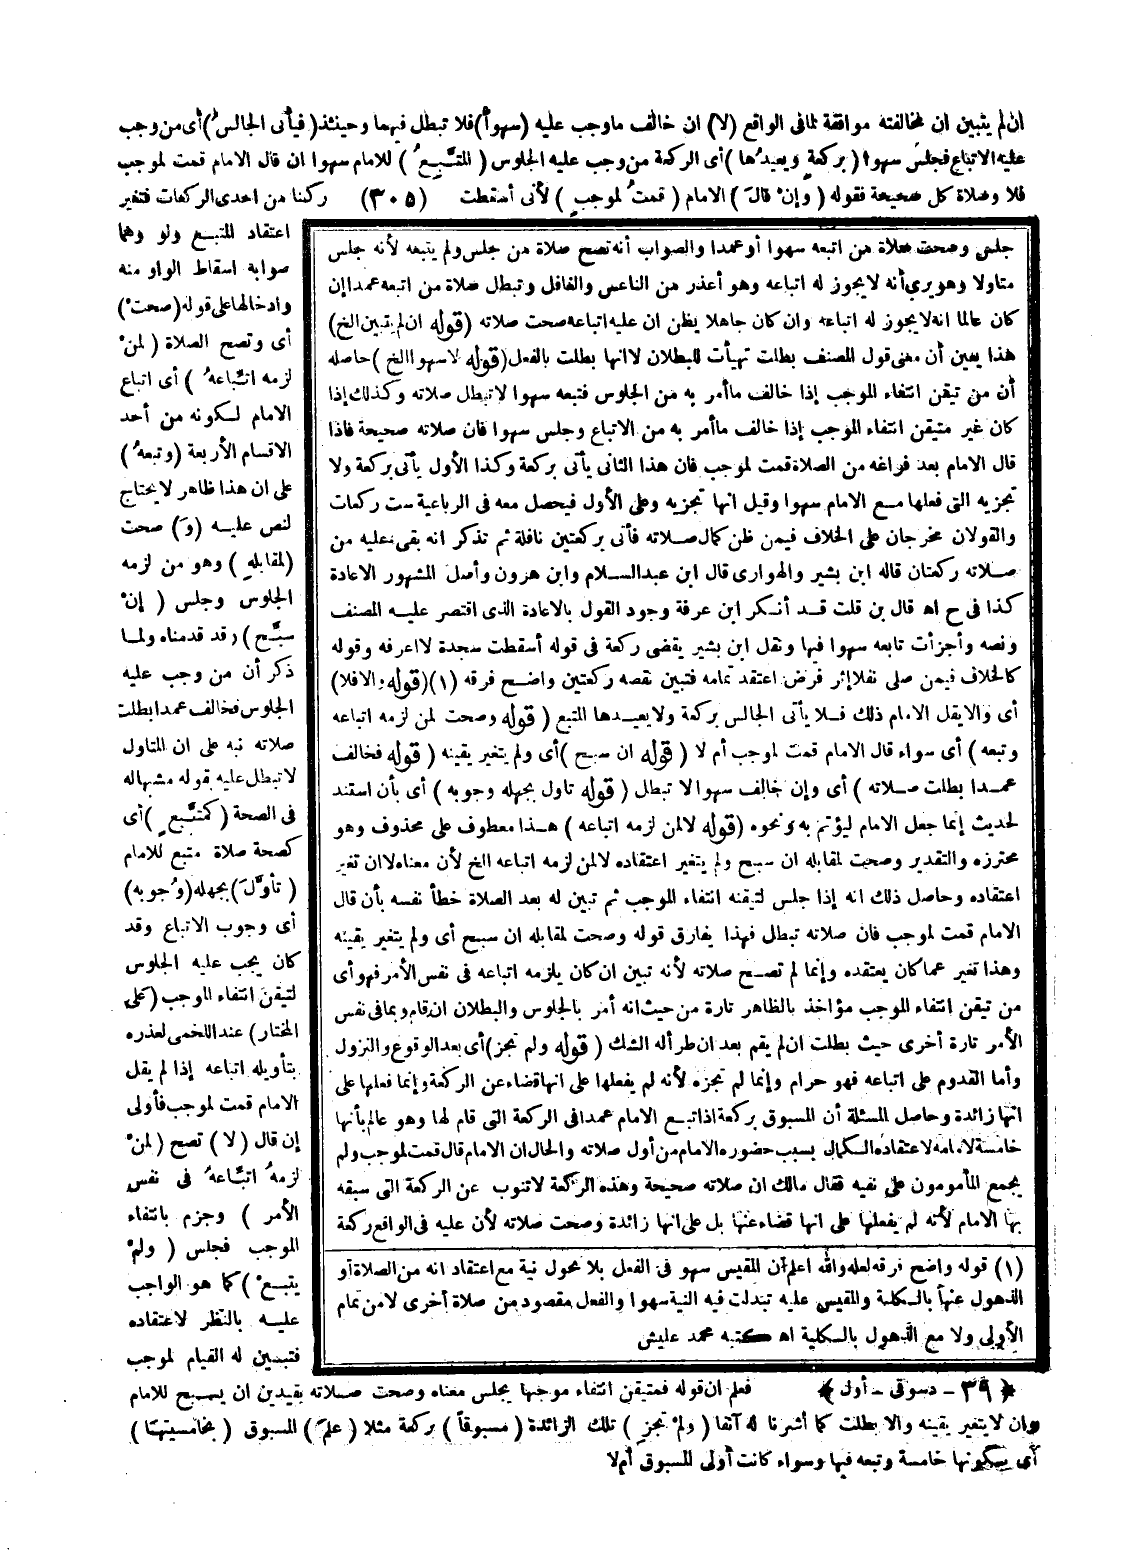 ان لم يتبين ان مخالفته موافقة لما فى الواقع (لا) ان خالف ماوجب عليه (سهوا) فلا تبطل فيهما وحينئذ (فيأتى الجالس) أى من وجب
عليه الاتباع فجلس سهوا (بركعة ويعيدها) أى الركعة من وجب عليه الجلوس (المتبع) للامام سهوا ان قال الامام قمت لموجب
فلا وصلاة كل صحيحة فقوله (وإن قال) الامام (قمت لموجب) لأنى أسقطت (٣٠٥) ركنا من احدى الركعات فتغير
اعتقاد المتبع ولو وهما
صوابه اسقاط الواو منه
وادخالها على قوله (صحت)
أى وتصح الصلاة (لمن
لزمه اتباعه) أى اتباع
الامام لكونه من أحد
الاقسام الأربعة (وتبعه)
على ان هذا ظاهر لا يحتاج
لنص عليه (و) صحت
(لمقابله) وهو من لزمه
الجلوس وجلس (إن
سبح) وقد قدمناه ولما
ذكر أن من وجب عليه
الجلوس فخالف عمدا بطلت
صلاته نبه على ان المتاول
لا تبطل عليه بقوله مشبها له
فى الصحة (كمتبع) أى
كصحة صلاة متبع للامام
(تأول) بجهله (وجوبه)
أى وجوب الاتباع وقد
كان يجب عليه الجلوس
لتيقن انتفاء الموجب (على
المختار) عند اللخمى لعذره
بتأويله اتباعه إذا لم يقل
الامام قمت لموجب فأولى
إن قال (لا) تصح (لمن
لزمه اتباعه فى نفس
الأمر) وجزم بانتفاء
الموجب فجلس (ولم
يتبع) كما هو الواجب
عليه بالنظر لاعتقاده
فتبين له القيام لموجب
جلس وصحت صلاة من اتبعه سهوا أو عمدا والصواب أنه تصح صلاة من جلس ولم يتبعه لأنه جلس
متاولا وهو يرى أنه لا يجوز له اتباعه وهو أعذر من الناعس والغافل وتبطل صلاة من اتبعه عمدا إن
كان عالما انه لا يجوز له اتباعه وان كان جاهلا يظن ان عليه اتباعه صحت صلاته (قوله ان لم يتبين الخ)
هذا يعين أن معنى قول المصنف بطلت تهيأت للبطلان لا انها بطلت بالفعل (قوله لا سهوا الخ) حاصله
أن من تيقن انتفاء الموجب إذا خالف ماأمر به من الجلوس فتبعه سهوا لا تبطل صلاته وكذلك إذا
كان غير متيقن انتفاء الموجب إذا خالف ماأمر به من الاتباع وجلس سهوا فان صلاته صحيحة فاذا
قال الامام بعد فراغه من الصلاة قمت لموجب فان هذا الثانى يأتى بركعة وكذا الأول يأتى بركعة ولا
تجزيه التى فعلها مع الامام سهوا وقيل انها تجزيه وعلى الأول فيحصل معه فى الرباعية ست ركعات
والقولان مخرجان على الخلاف فيمن ظن كمال صلاته فأتى بركعتين نافلة ثم تذكر انه بقى عليه من
صلاته ركعتان قاله ابن بشير والهوارى قال ابن عبد السلام وابن هرون وأصل المشهور الاعادة
كذا فى ح اه قال بن قلت قد أنكر ابن عرفة وجود القول بالاعادة الذى اقتصر عليه المصنف
ونصه وأجزأت تابعه سهوا فيها ونقل ابن بشير يقضى ركعة فى قوله أسقطت سجدة لا اعرفه وقوله
كالخلاف فيمن صلى نفلا إثر فرض اعتقد تمامه فتبين نقصه ركعتين واضح فرقه (١) (قوله والا فلا)
أى والا يقل الامام ذلك فلا يأتى الجالس بركعة ولا يعيدها المتبع (قوله وصحت لمن لزمه اتباعه
وتبعه) أى سواء قال الامام قمت لموجب أم لا (قوله ان سبح) أى ولم يتغير يقينه (قوله فخالف
عمدا بطلت صلاته) أى وإن خالف سهوا لا تبطل (قوله تاول بجهله وجوبه) أى بأن استند
لحديث إنما جعل الامام ليؤتم به ونحوه (قوله لا لمن لزمه اتباعه) هذا معطوف على محذوف وهو
محترزه والتقدير وصحت لمقابله ان سبح ولم يتغير اعتقاده لا لمن لزمه اتباعه الخ لأن معناه لا ان تغير
اعتقاده وحاصل ذلك انه إذا جلس لتيقنه انتفاء الموجب ثم تبين له بعد الصلاة خطأ نفسه بأن قال
الامام قمت لموجب فان صلاته تبطل فهذا يفارق قوله وصحت لمقابله ان سبح أى ولم يتغير يقينه
وهذا تغير عما كان يعتقده وإنما لم تصح صلاته لأنه تبين ان كان يلزمه اتباعه فى نفس الأمر فهو أى
من تيقن انتفاء الموجب مؤاخذ بالظاهر تارة من حيث انه أمر بالجلوس والبطلان ان قام وبما فى نفس
الأمر تارة أخرى حيث بطلت ان لم يقم بعد ان طرأ له الشك (قوله ولم تجز) أى بعد الوقوع والنزول
وأما القدوم على اتباعه فهو حرام وإنما لم تجزه لأنه لم يفعلها على انها قضاء عن الركعة وإنما فعلها على
انها زائدة وحاصل المسئلة أن المسبوق بركعة إذا تبع الامام عمدا فى الركعة التى قام لها وهو عالم بأنها
خامسة لامامه لاعتقاده الكمال بسبب حضوره الامام من أول صلاته والحال ان الامام قال قمت لموجب ولم
يجمع المأمومون على نفيه فقال مالك ان صلاته صحيحة وهذه الركعة لا تنوب عن الركعة التى سبقه
بها الامام لأنه لم يفعلها على انها قضاء عنها بل على انها زائدة وصحت صلاته لأن عليه فى الواقع ركعة
(١) قوله واضح فرقه لعله والله اعلم أن المقيس سهو فى الفعل بلا محول نية مع اعتقاد انه من الصلاة أو
الذهول عنها بالكلية والمقيس عليه تبدلت فيه النية سهوا والفعل مقصود من صلاة أخرى لا من تمام
الأولى ولا مع الذهول بالكلية اه كتبه محمد عليش
﴿٣٩ - دسوقى - أول﴾ فعلم ان قوله فمتيقن انتفاء موجبها يجلس معناه وصحت صلاته بقيدين ان يسبح للامام
وان لا يتغير يقينه والا بطلت كما أشرنا له آنفا (ولم تجز) تلك الزائدة (مسبوقا) بركعة مثلا (علم) المسبوق (بخامسيتها)
أى بكونها خامسة وتبعه فيها وسواء كانت أولى للمسبوق أم لا